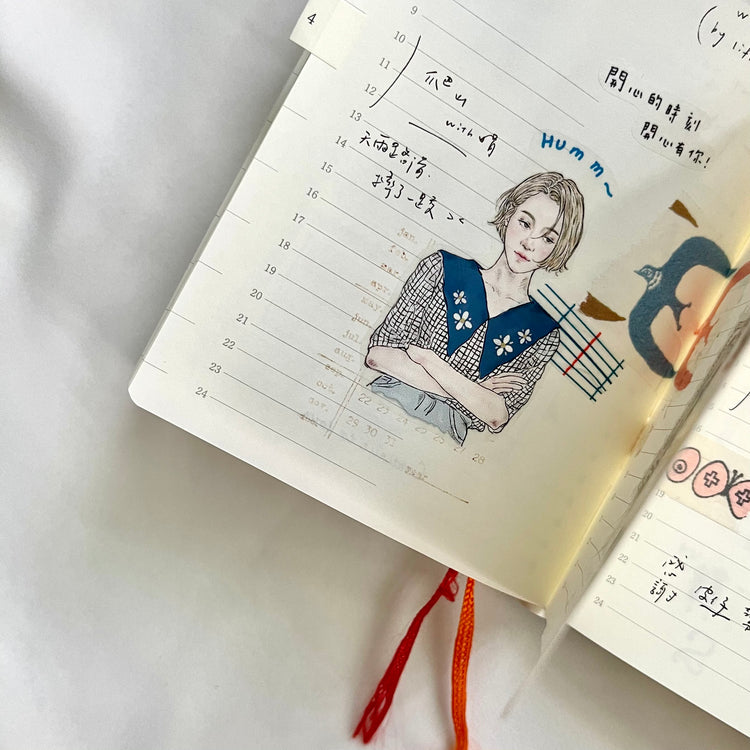 4
9
10
11
12
13
14
15
16
17
18
19
20
21
22
23
24
爬山
with
天雨路滑.
摔了一跤 ><
Humm~
開心的時刻
開心有你!
(by
jan.
feb.
mar.
apr.
may
jun.
jul.
aug.
sep.
oct.
nov.
22 23 24 25 26 27 28
29 30 31
year
19
20
21
22
23
24
感
謝